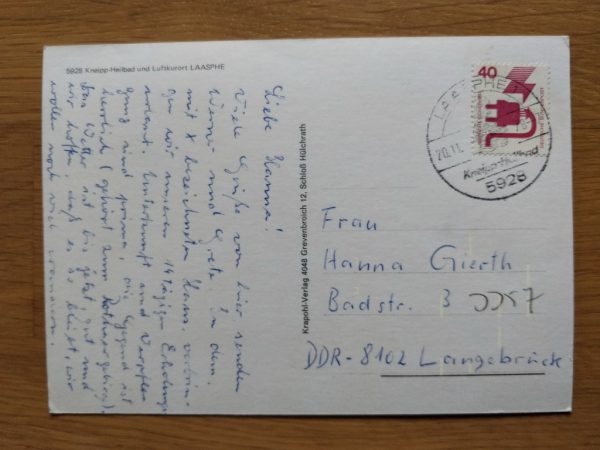 5928 Kneipp-Heilbad und Luftkurort LAASPHE
Liebe Hanna!
Viele Grüße von hier senden
Werner und Grete. In dem
mit X bezeichneten Haus verbrin-
gen wir unseren 14 tägigen Erholungs
Unterkunft und Verpfle-
gung sind prima, die Gegend ist
herrlich (gehört zum Rothaargebirge).
Das Wetter ist bis jetzt gut und
wir hoffen, daß es so bleibt, wir
wollen noch viel wandern.
Krapohl-Verlag 4048 Grevenbroich 12, Schloß Hülchrath
40
LAASPHE
20.11.
Kneipp-Heilbad
5928
Frau
Hanna Gierth
Badstr. 3
DDR-8102 Langebrück